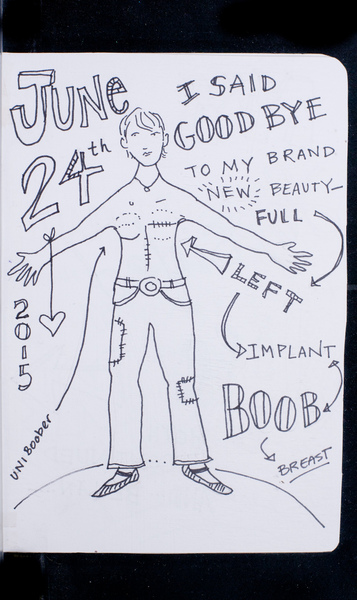 JUNE
24th
2015
I SAID
GOOD BYE
TO MY BRAND
NEW BEAUTY-
FULL
LEFT
IMPLANT
BOOB
BREAST
UNIBOOBER